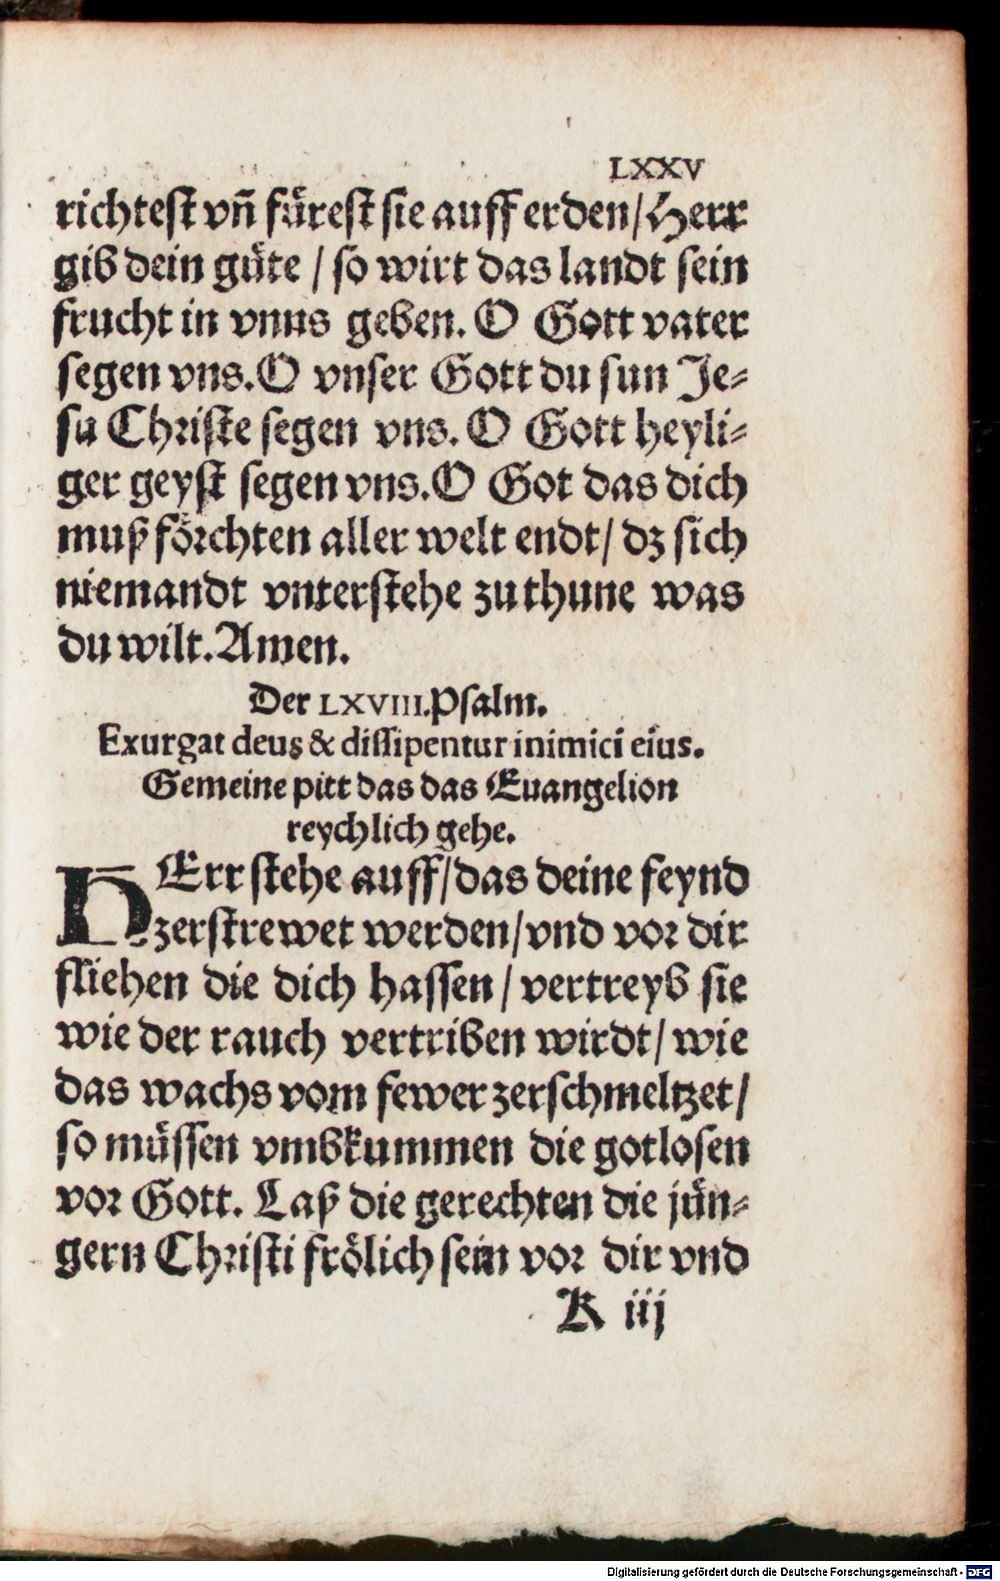 LXXV
richtest vñ fürest sie auff erden/Herr
gib dein güte / so wirt das landt sein
frucht in vnns geben. O Gott vater
segen vns. O vnser Gott du sun Je-
su Christe segen vns. O Gott heyli-
ger geyst segen vns. O Got das dich
muß förchten aller welt endt/ dz sich
niemandt vnterstehe zu thune was
du wilt. Amen.
Der LXVIII. Psalm.
Exurgat deus & dissipentur inimici eius.
Gemeine pitt das das Euangelion
reychlich gehe.
HErr stehe auff/das deine feynd
zerstrewet werden/vnd vor dir
fliehen die dich hassen/ vertreyb sie
wie der rauch vertriben wirdt/ wie
das wachs vom fewer zerschmeltzet/
so müssen vmbkummen die gotlosen
vor Gott. Laß die gerechten die jün-
gern Christi frölich sein vor dir vnd
K iij
Digitalisierung gefördert durch die Deutsche Forschungsgemeinschaft - DFG